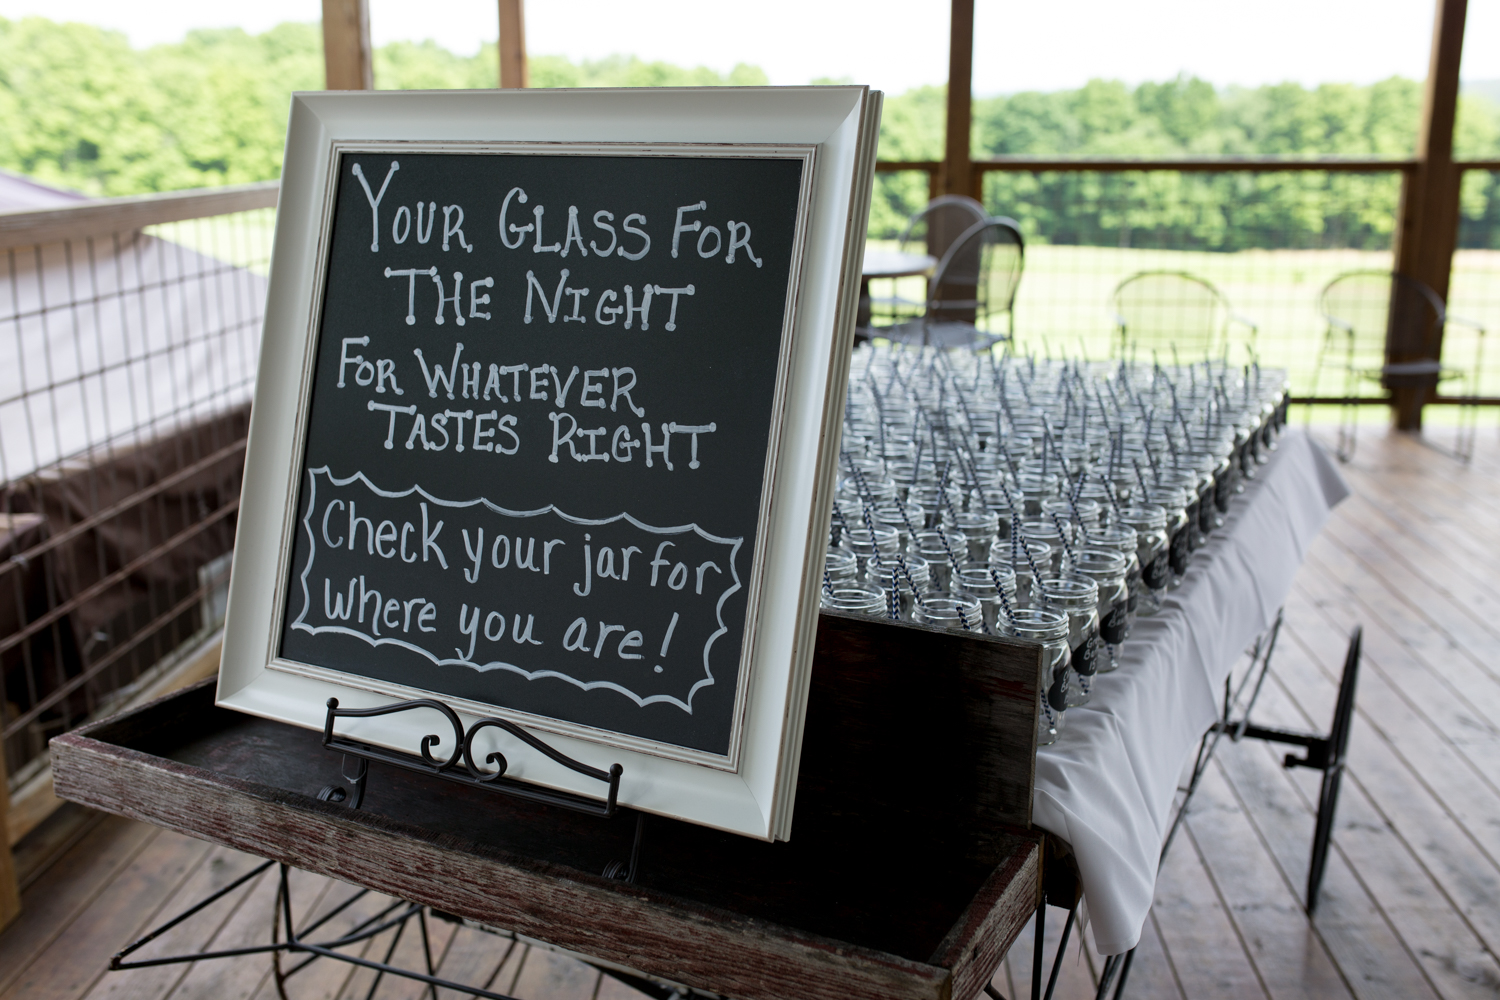 YOUR GLASS FOR
THE NIGHT
FOR WHATEVER
TASTES RIGHT
Check your jar for
where you are!